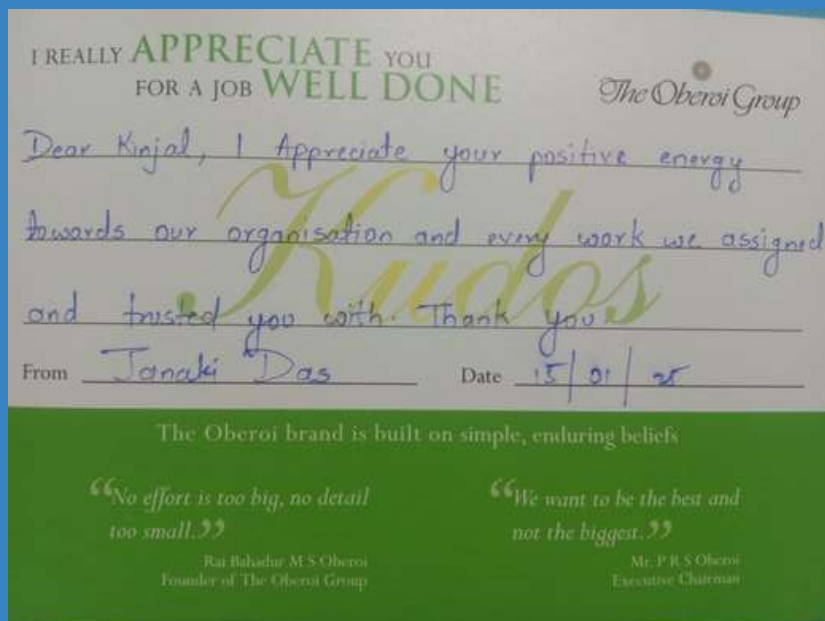 I REALLY APPRECIATE YOU
FOR A JOB WELL DONE
The Oberoi Group
Dear Kinjal, I Appreciate your positive energy
towards our organisation and every work we assigned
and trusted you with. Thank you.
Kudos
From Janaki Das Date 15/01/25
The Oberoi brand is built on simple, enduring beliefs
“No effort is too big, no detail
too small.”
Rai Bahadur M S Oberoi
Founder of The Oberoi Group
“We want to be the best and
not the biggest.”
Mr. P R S Oberoi
Executive Chairman